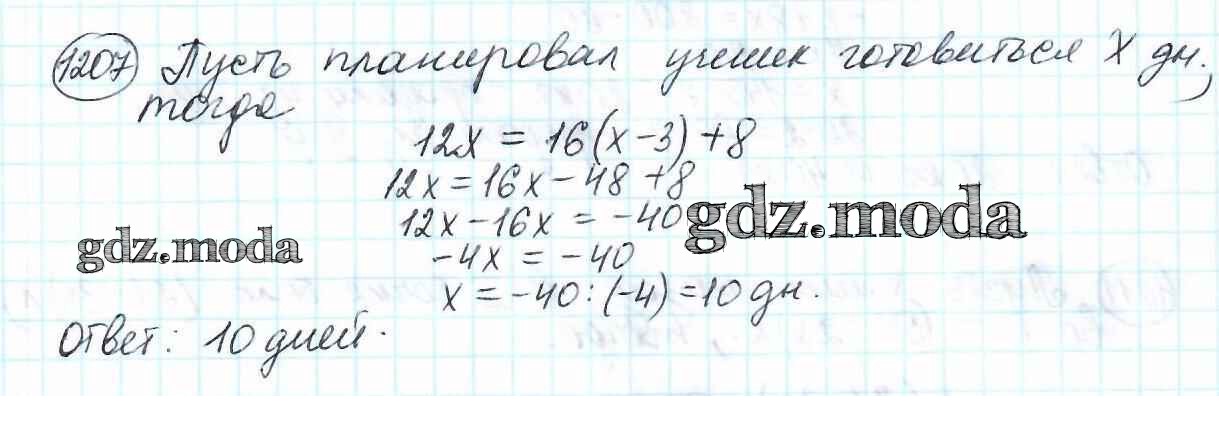 1207 Пусть планировал ученик готовиться X дн.,
тогда
12x = 16(x-3) + 8
12x = 16x - 48 + 8
12x - 16x = -40
gdz.moda
gdz.moda
-4x = -40
x = -40 : (-4) = 10 дн.
Ответ: 10 дней.